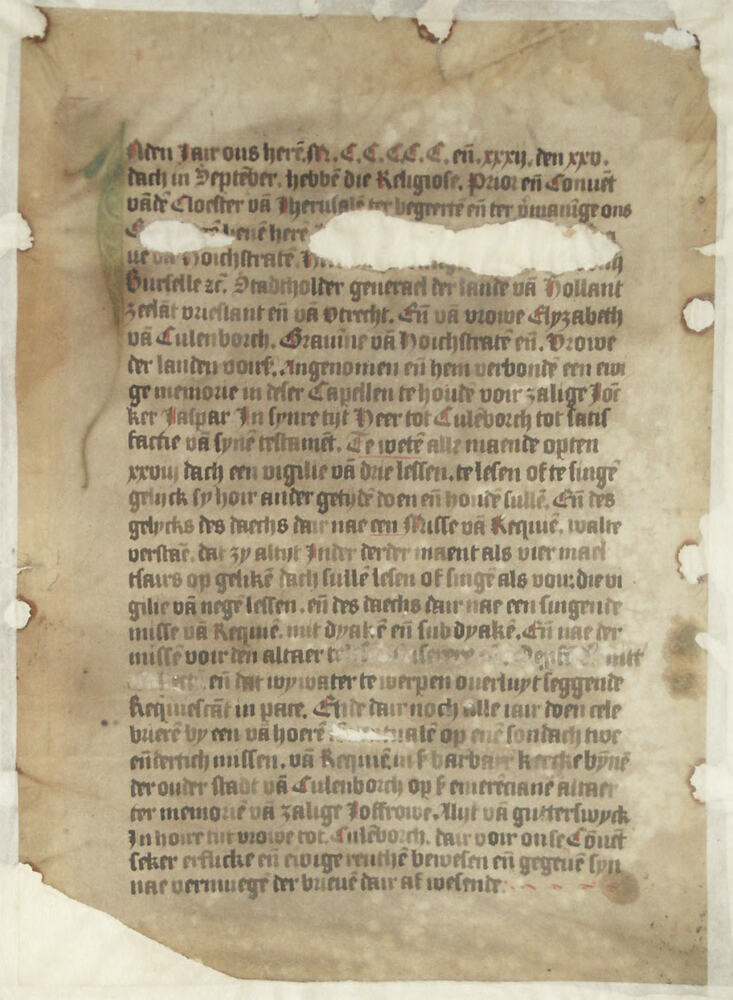 Aden Jair ons herē. M. C. C. C.C. C. eñ. xxxij. den xxv.
dach in Septēber. hebbē die Religiose. Prior eñ Convēt
vādē Cloester vā Jherusalē ter begeertē eñ ter v̄manīge ons
here
ue vā Hoichstratē.
Bueselle zc̄. Stadtholder generael der lande vā Hollant
zeelāt vrieslant eñ vā Vtrecht. Eñ vā vrowe Elyzabeth
vā Culenborch. Grauīne vā Hoichstratē eñ. Vrowe
der landen vours. Angenomen eñ hem verbondē een ewi
ge memorie in deser Capellen te houdē voir zalige Jōc
ker Jaspar In synre tijt Heer tot Culēborch tot satis
factie vā synē testamēt. Te wetē alle maende opten
xxviij dach een vigilie vā drie lessen. te lesen of te singē
gelijck sy hoir ander getydē doen eñ houdē sullē. Eñ des
gelycks des daechs dair nae een Misse vā Requiē. walte
verstaē. dat zy altijt Inder derder maent als vier mael
tsairs op gelikē dach sullē lesen of singē als vour: die vi
gilie vā negē lessen. eñ des daechs dair nae een singende
misse vā Requiē. mit dyakē eñ subdyakē. Eñ nae der
missē voir den altaer mitt
eñ dat wywater te werpen ouerluyt seggende
Requiescāt in pace. Ende dair noch alle iair doen cele
brierē by een vā hoerē op enē sondach twe
eñdertich missen. vā Requiē in s̄ barbarē kercke bynē
der ouder stadt vā Culenborch op s̄ emerēcianē altaer
ter memoriē vā zalige Joffrowe. Alijt vā gutterswyck
In hoire tijt vrowe tot. Culēborch. dair voir onse Cōuēt
seker erflicke eñ ewige renthē bewesen eñ gegeuē syn
nae vermuege der brieuē dair af wesende.